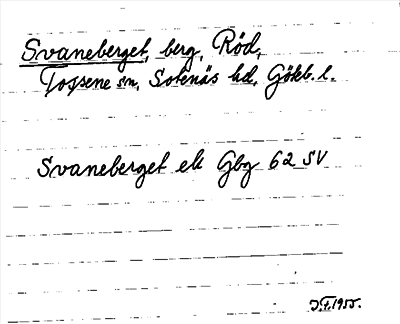 Svaneberget, berg, Röd,
Tossene sn, Sotenäs hd, Gökb. l.
Svaneberget ek Gbg 62 SV
1955.